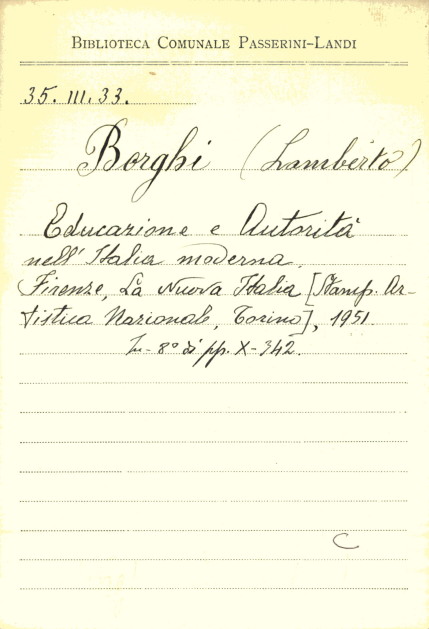 BIBLIOTECA COMUNALE PASSERINI-LANDI
35. III. 33.
Borghi (Lamberto)
Educazione e Autorità
nell'Italia moderna.
Firenze, La Nuova Italia [Stamp. Ar-
tistica Nazionale, Torino], 1951.
In-8° di pp. X-342.
C